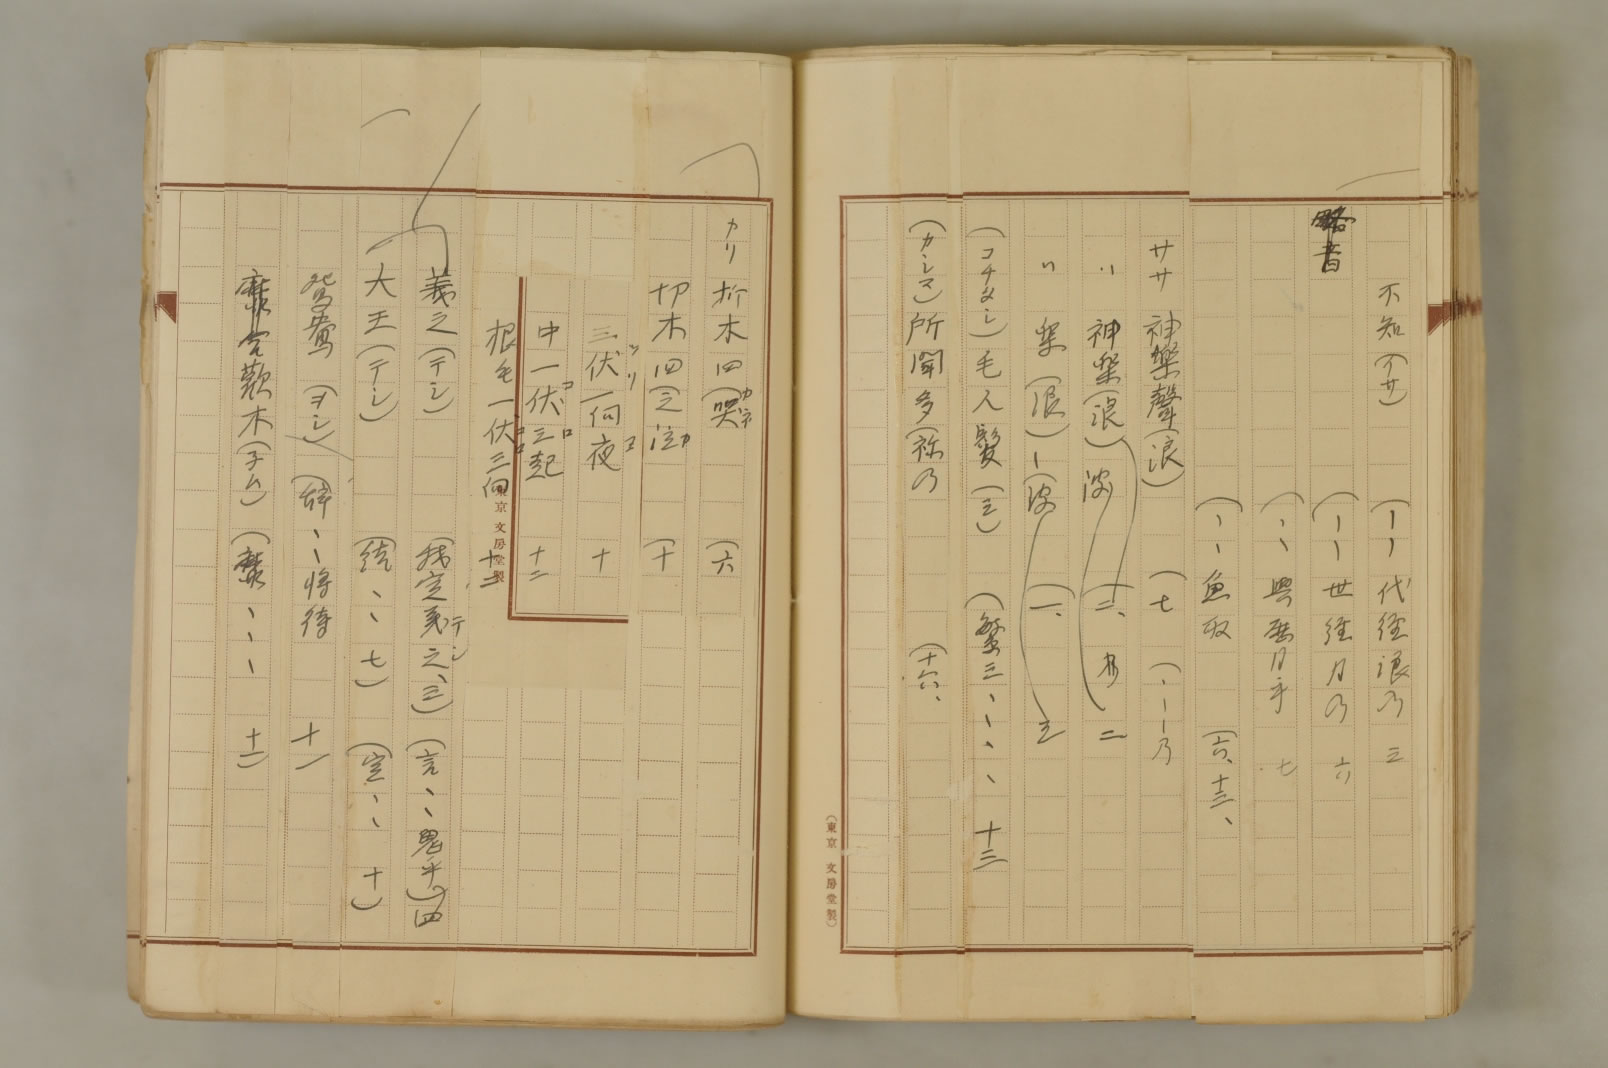 不知(イサ) (〃 代経浪乃 三
略音 (〃 世経月乃 六
(、、 興歴月乎 七
(、、 魚取 (六、十三、
ササ 神樂聲(浪) (七 (、、ー乃
〃 神楽(浪)波 (二、 二
〃 楽(浪)ー(波 (一、 三
(コチタシ)毛人髪(三) (繁三、、、、 十二
(カシマ)所聞多(祢乃 (十六、
(東京 文房堂製)
カリ 折木四(哭 (六
切木四(之泣 (十
三伏一向夜 十
中一伏三起 十二
根毛一伏三向 十三
東京 文房堂製
義之(テシ) (我定義之、三) (言、、思乎)四
大王(テシ) (結、、七) (定、、十)
鴛鴦(ヲシ) 、、将待 十一
合歓木(子ム) 、、、 十一)